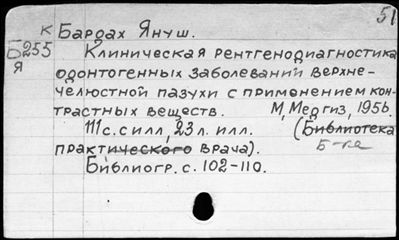 51
к Бардах Януш.
Б255
Я
Клиническая рентгенодиагностика
одонтогенных заболеваний верхне-
челюстной пазухи с применением кон-
трастных веществ. М, Медгиз, 1956.
111 с. с илл, 23 л. илл. (Библиотека
практического врача).
Б-ка
Библиогр. с. 102-110.